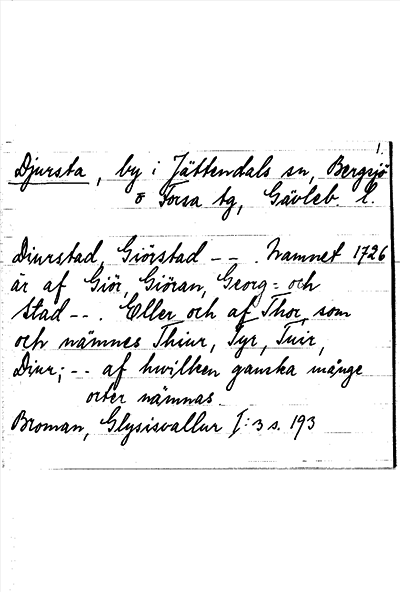 1.
Djursta, by i Jättendals sn, Bergsjö
o Forsa tg, Gävleb. l.
Diurstad, Giörstad - - . Namnet 1726
är af Giör, Giöran, Georg = och
Stad - - . Eller och af Thor, som
och nämnes Thiur, Tyr, Tuir,
Diur; - - af hwilken ganska månge
orter nämnas.
Broman, Glysisvallur I: 3 s. 193